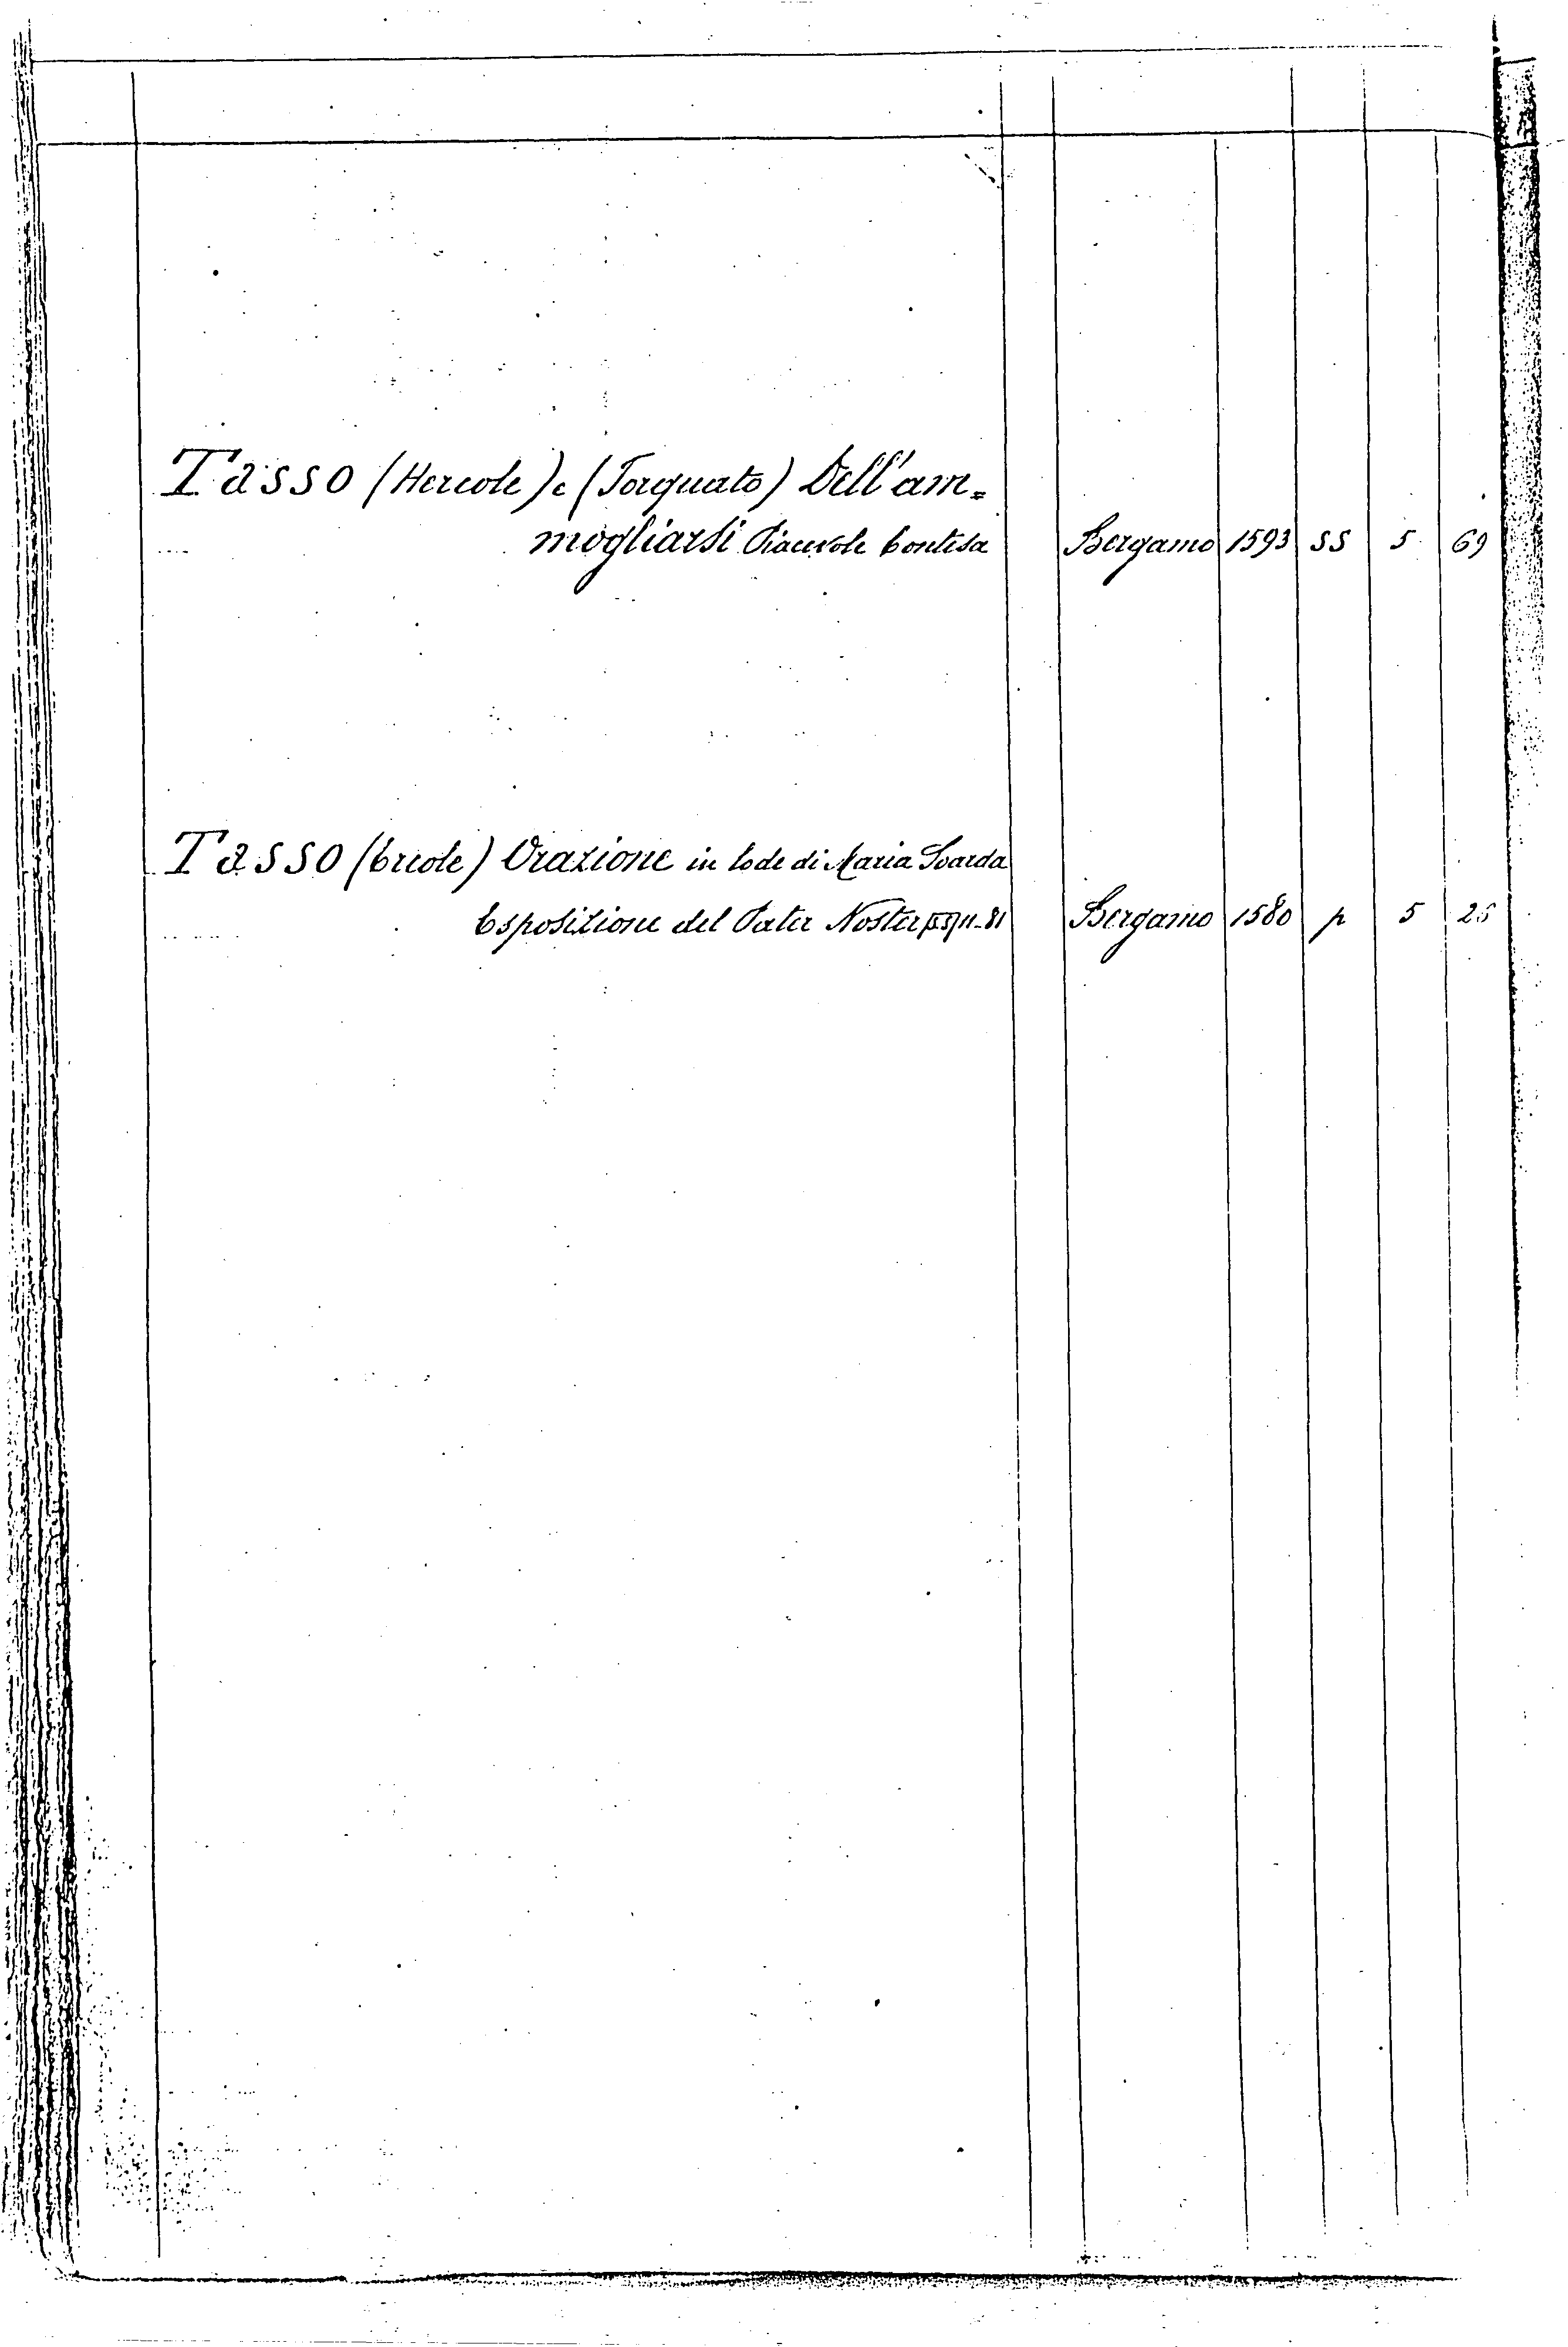 Tasso (Hercole) e (Torquato) Dell'am=
mogliarsi Piacevole Contesa Bergamo 1593 SS 5 69
Tasso (Ercole) Orazione in lode di Maria Soarda
Esposizione del Pater Noster 11-81 Bergamo 1580 p 5 25